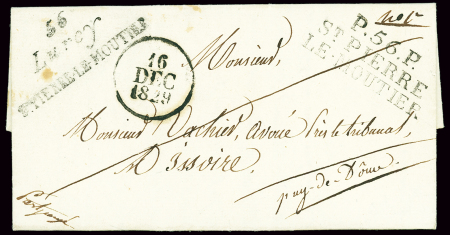 56
ST-PIERRE-LE-MOUTIER
16
DEC
1829
P.56.P.
ST PIERRE
LE-MOUTIER
Monsieur,
Monsieur Vachier, avoué près le tribunal,
D'issoire.
puy-de-Dôme.